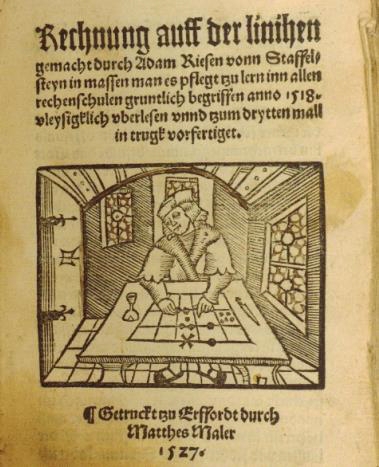 Rechnung auff der linihen
gemacht durch Adam Riesen vonn Staffel-
steyn in massen man es pflegt tzu lern inn allen
rechenschulen gruntlich begriffen anno 1518.
vleysigklich vberlesen vnnd tzum drytten mall
in trugk vorfertiget.
¶ Getruckt tzu Erffordt durch
Matthes Maler
·1527·